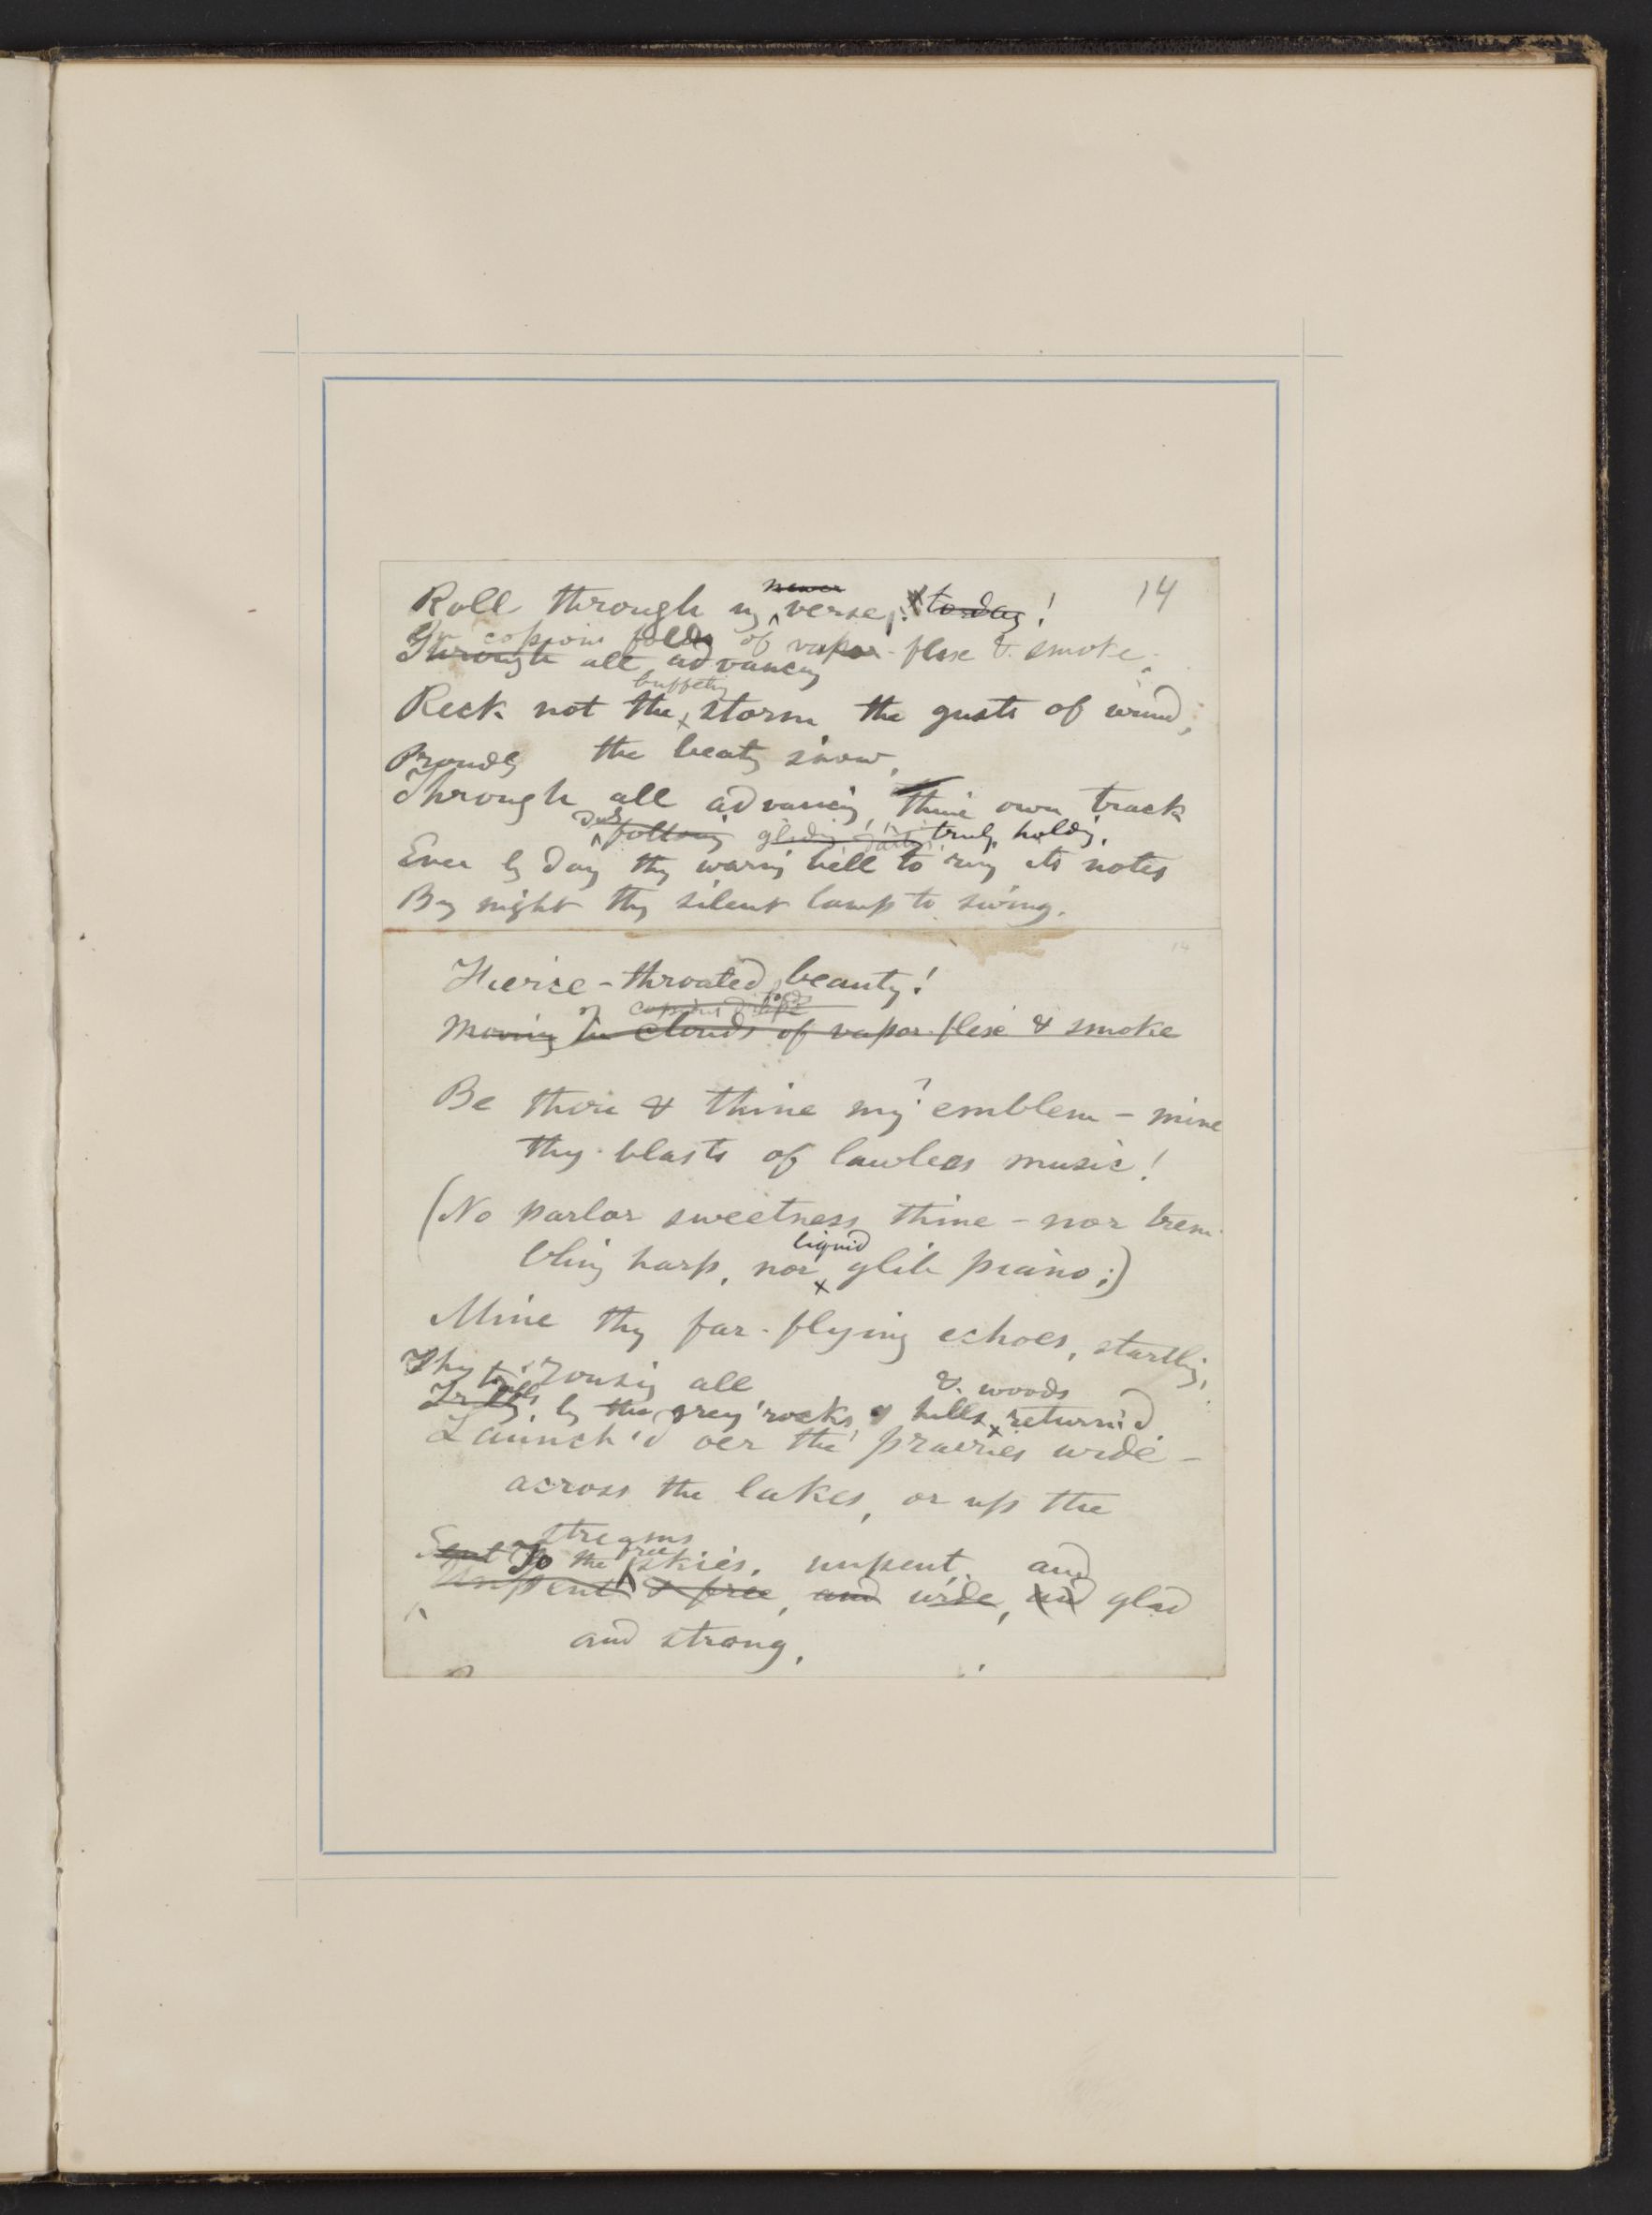 14
newer
Roll through my verse, to-day!
In copious folds of vapor-flose & smoke;
Through all advancing
buffeting
Reck not the storm the gusts of wind,
Proudly the beatg snow,
Through all advancing, thine own track
duly following gliding truly holdg,
Ever by day thy warng bell to ring its notes
By night thy silent lamp to swing.
14
Fierce-throated beauty!
copious
Moving in clouds of vapor-flose & smoke
Be thou & thine my emblem - mine
thy blasts of lawless music!
(No parlor sweetness thine - nor trem-
liquid
bling harp, nor glib piano;)
Mine thy far-flying echoes, startling,
rousing all
Thy trills & woods
by the grey rocks & hills return'd
Launch'd oer the prairies wide -
across the lakes, or up the
streams
free
Sent To the skies, unpent, and
Unpent & free, and wide, and glad
and strong.